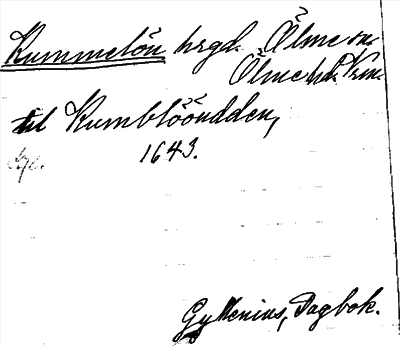 Kummelön hrgd. Ölme sn.
Ölme hd. Vrm.
til Kumblööudden,
1643.
Gyllenius, Dagbok.